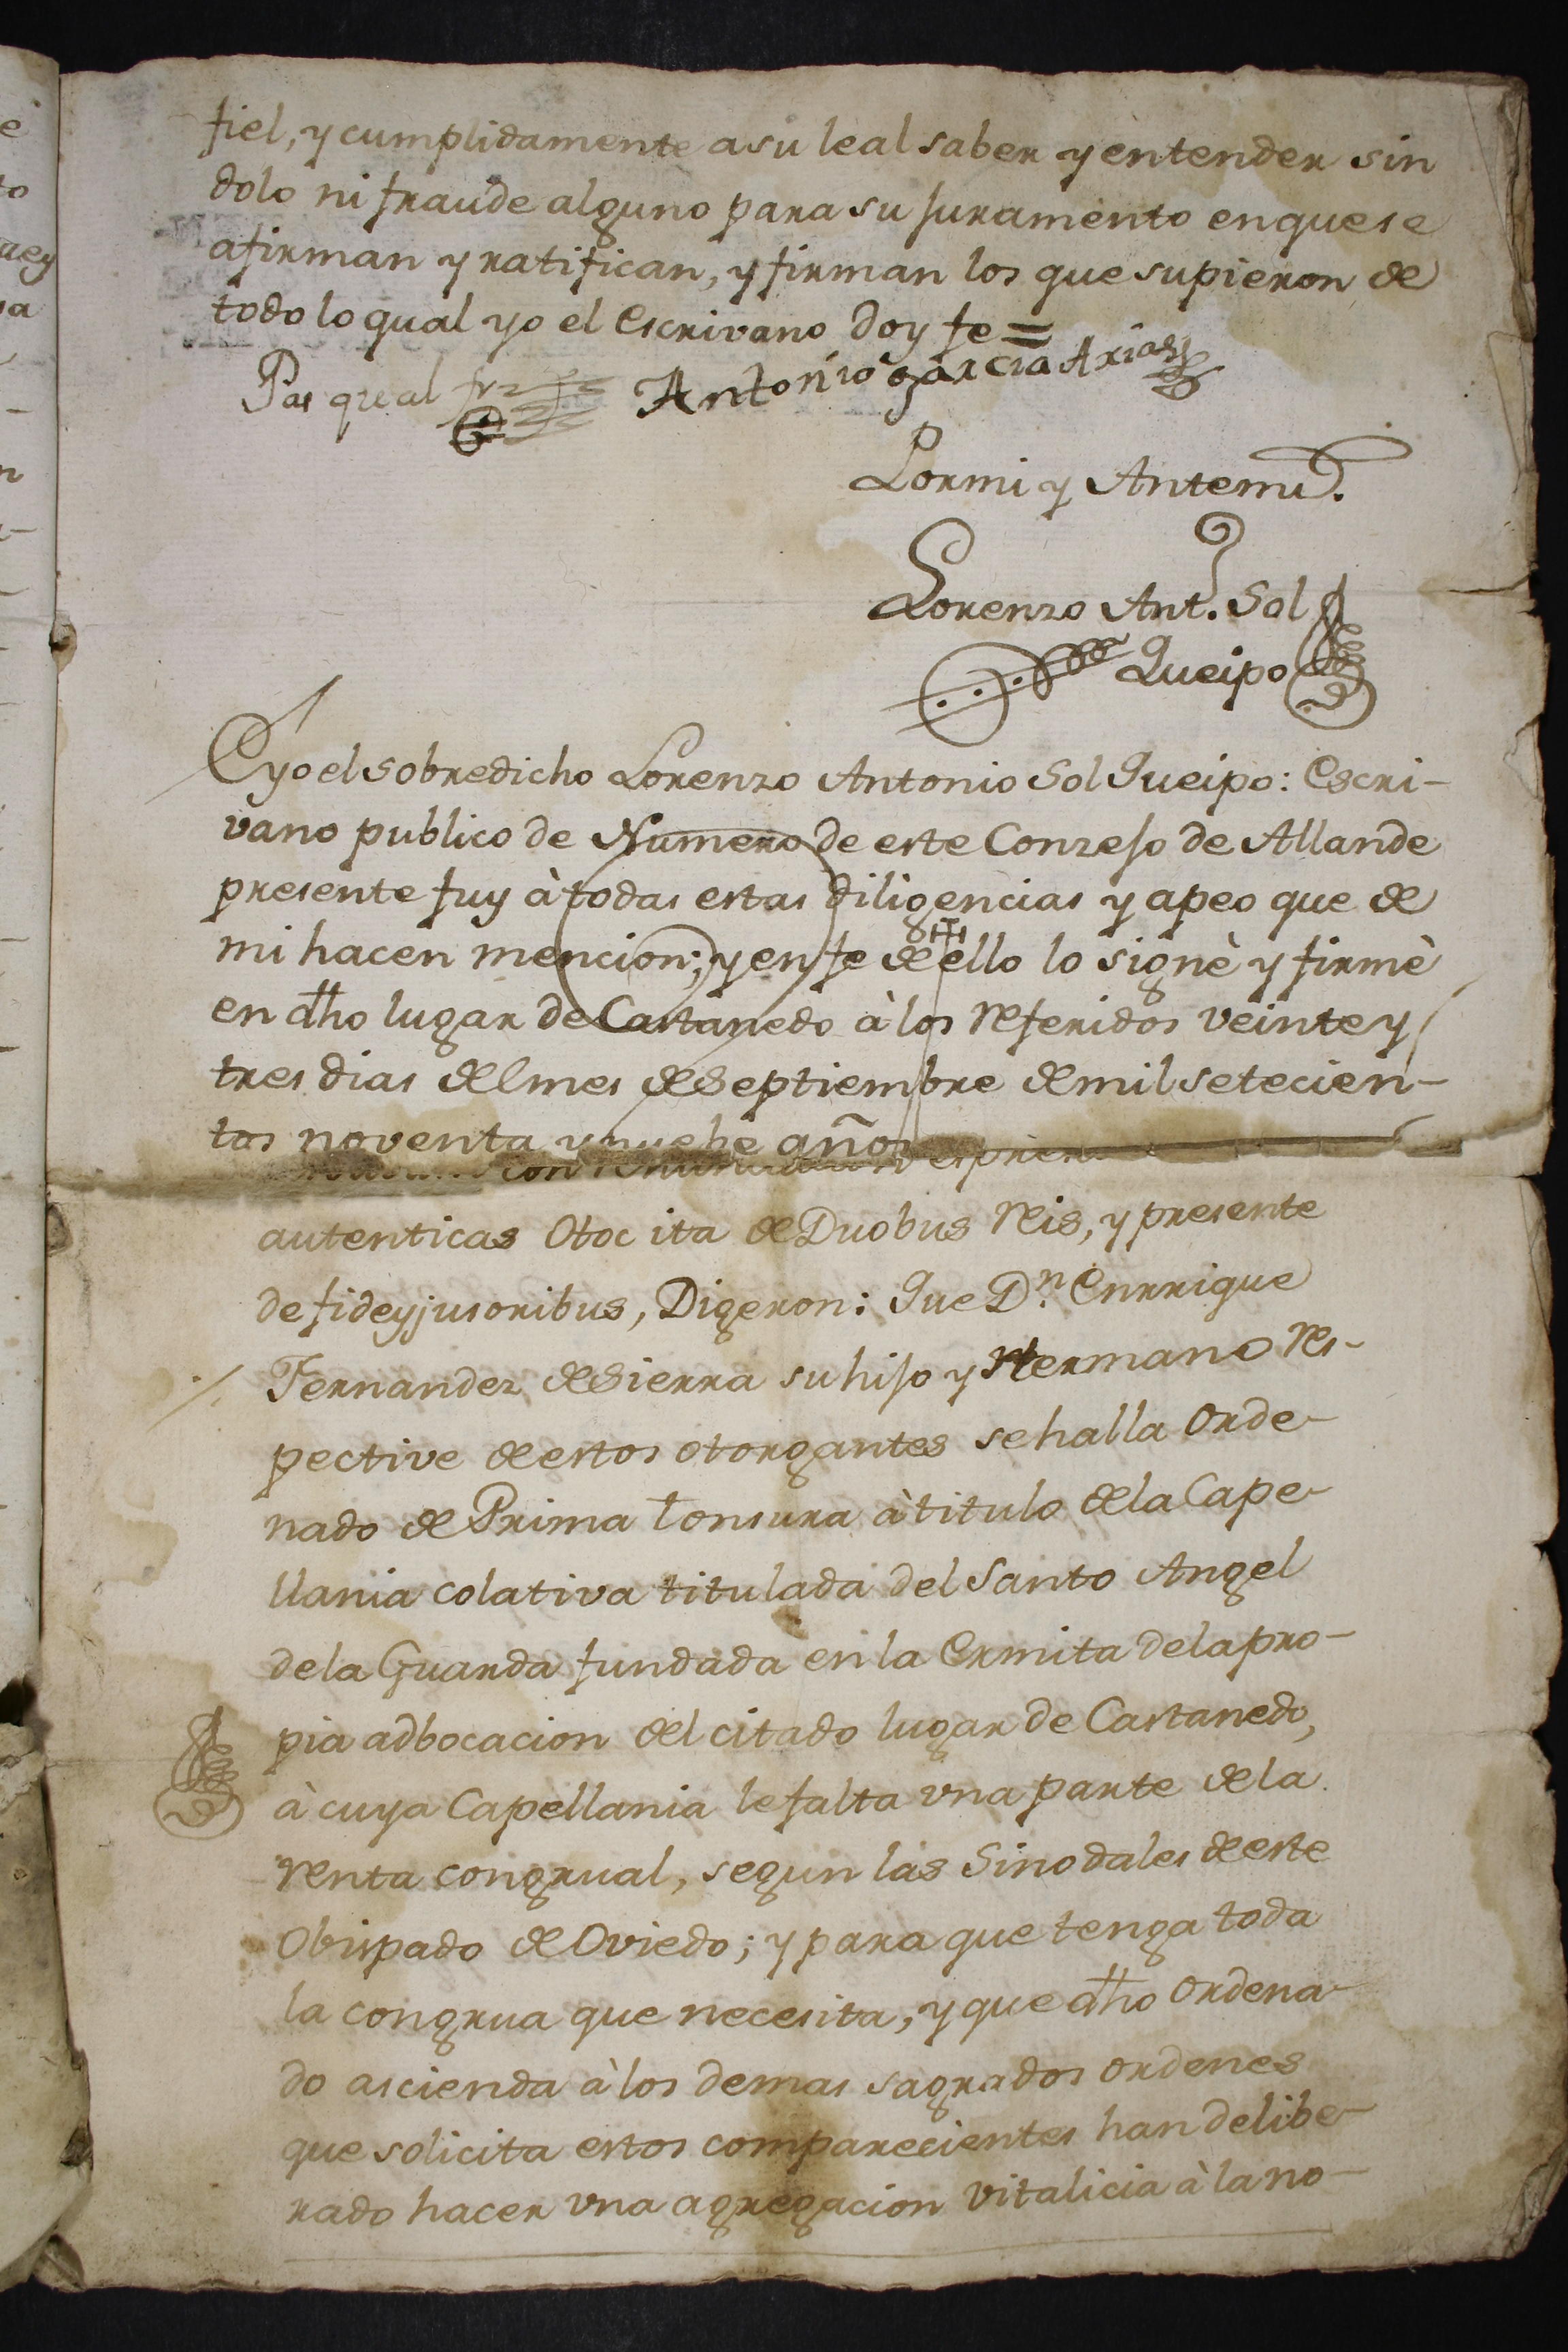 fiel, y cumplidamente a su leal saber y entender sin
dolo ni fraude alguno para su juramento en que se
afirman y ratifican, y firman los que supieron de
todo lo qual yo el Escrivano doy fe =
Pasqual frz Antonio garcia Arias
Pormi y Antemi.
Lorenzo Ant. Sol
Queipo
E yo el sobredicho Lorenzo Antonio Sol Queipo: Escri-
vano publico de Numero de este Conzejo de Allande
presente fuy à todas estas diligencias y apeo que de
mi hacen mencion; y en fe de ello lo signè y firmè
en dho lugar de Castanedo à los referidos veinte y
tres dias del mes de Septiembre de mil setecien-
tos noventa y nuebe años
con
autenticas Otoc ita de Duobus Reis, y presente
de fideyjusoribus, Digeron: Que Dn. Enrrique
Fernandez de Sierra su hijo y Hermano res-
pective de estos otorgantes se halla Orde-
nado de Prima tonsura à titulo de la Cape-
llania colativa titulada del Santo Angel
de la Guarda fundada en la Ermita de la pro-
pia adbocacion del citado lugar de Castanedo,
à cuya Capellania le falta vna parte de la
renta congrual, segun las Sinodales de este
Obispado de Oviedo; y para que tenga toda
la congrua que necesita, y que dho Ordena-
do ascienda à los demas sagrados ordenes
que solicita estos comparecientes han delibe-
rado hacer vna agregacion vitalicia à la no-